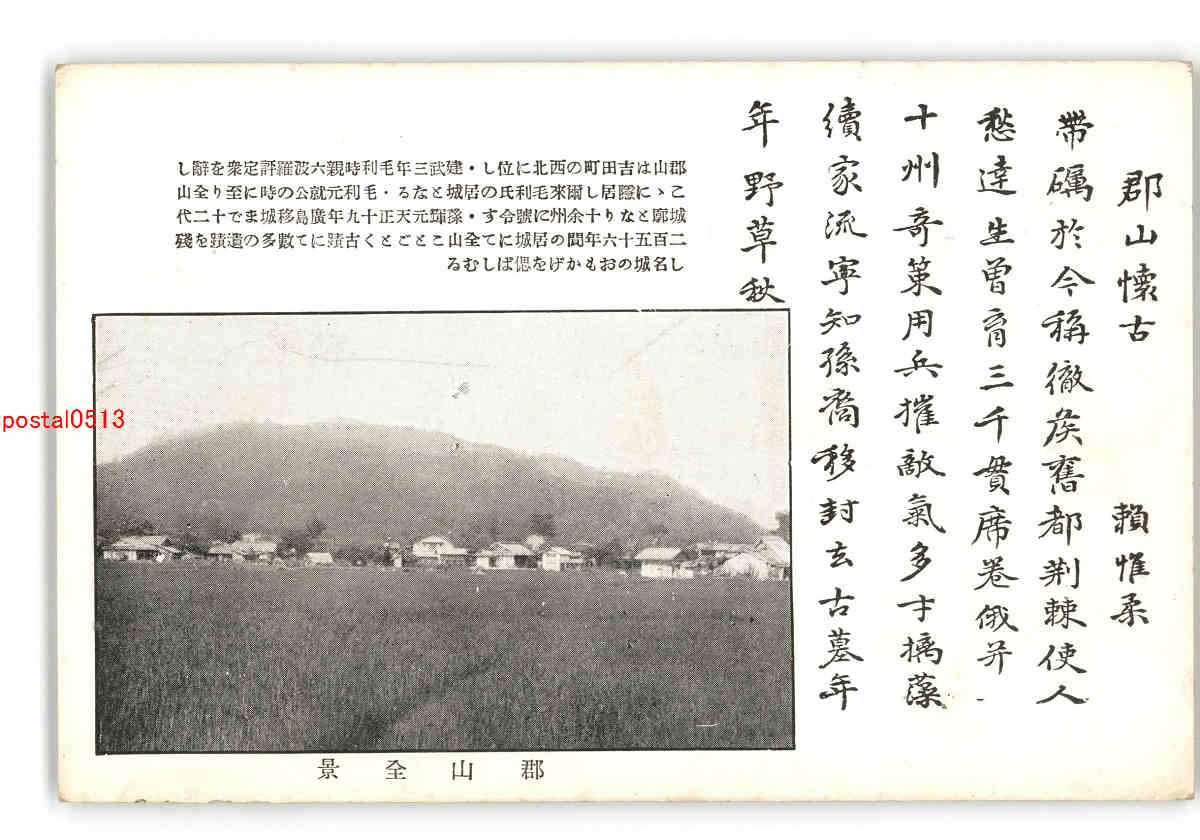 郡山懷古　賴惟柔
帶礪於今稱徹侯舊都荆棘使人
愁達生曾育三千貫席卷俄并
十州奇策用兵摧敵氣多才摛藻
續家流寧知孫裔移封去古墓年
年野草秋
郡山は吉田町の西北に位し・建武三年毛利時親六波羅評定衆を辭し
こゝに隱居し爾來毛利氏の居城となる・毛利元就公の時に至り全山
城廓となり十余州に號令す・孫輝元天正十九年廣島移城まで十二代
二百五十六年間の居城にて全山ことごとく古蹟にて數多の遺蹟を殘
し名城のおもかげを偲ばしむる
郡山全景
postal0513